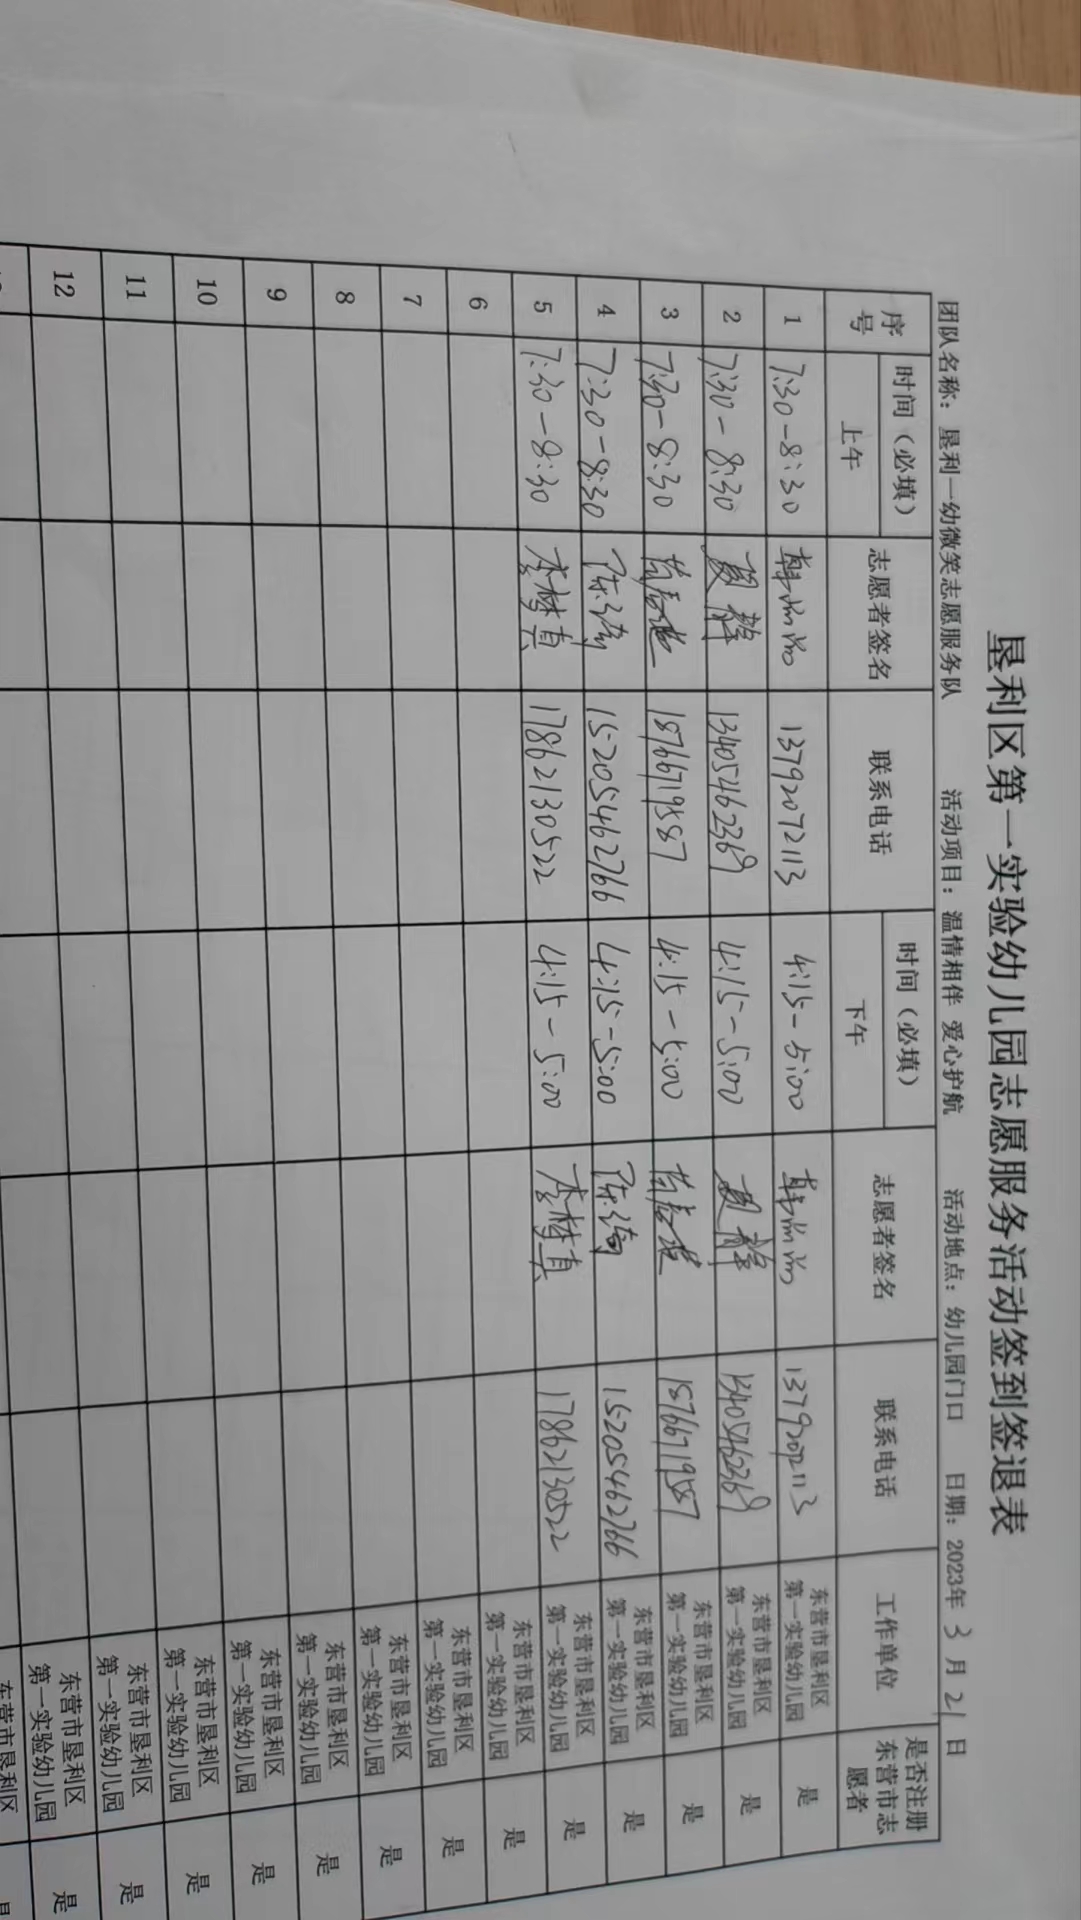 垦利区第一实验幼儿园志愿服务活动签到签退表
团队名称：垦利一幼微笑志愿服务队 活动项目：温情相伴 爱心护航 活动地点：幼儿园门口 日期：2023年 3 月 21 日
序号 时间（必填） 上午 志愿者签名 联系电话 时间（必填） 下午 志愿者签名 联系电话 工作单位 是否注册东营市志愿者
1 7:30-8:30 13792072113 4:15-5:00 13792072113 东营市垦利区第一实验幼儿园 是
2 7:30-8:30 夏静 13405462369 4:15-5:00 夏静 13405462369 东营市垦利区第一实验幼儿园 是
3 7:30-8:30 18766719587 4:15-5:00 18766719587 东营市垦利区第一实验幼儿园 是
4 7:30-8:30 陈绮 15205462766 4:15-5:00 陈绮 15205462766 东营市垦利区第一实验幼儿园 是
5 7:30-8:30 李梦真 17862130522 4:15-5:00 李梦真 17862130522 东营市垦利区第一实验幼儿园 是
6 东营市垦利区第一实验幼儿园 是
7 东营市垦利区第一实验幼儿园 是
8 东营市垦利区第一实验幼儿园 是
9 东营市垦利区第一实验幼儿园 是
10 东营市垦利区第一实验幼儿园 是
11 东营市垦利区第一实验幼儿园 是
12 东营市垦利区第一实验幼儿园 是
东营市垦利区